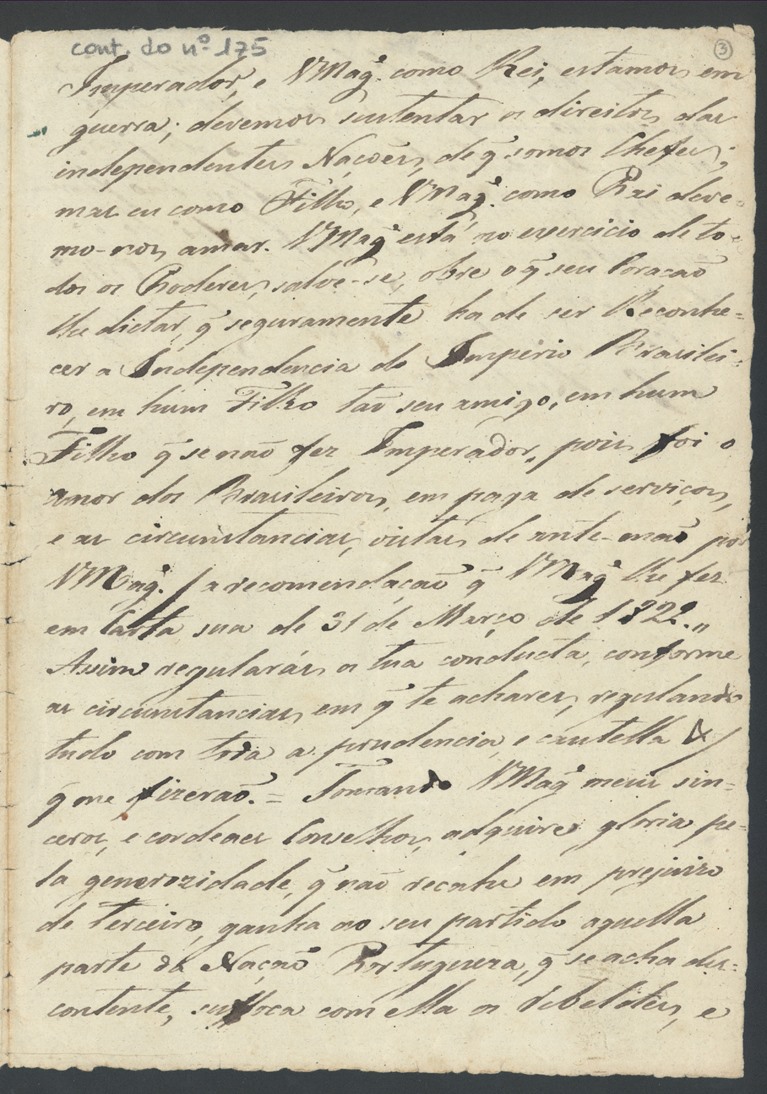 cont. do nº 175
3
Imperador, e VMagᵉ. como Rei, estamos em
guerra; devemos sustentar os direitos das
independentes Nações, de q̃ somos Chefes;
mas eu como Filho, e VMagᵉ. como Pai deve-
mo-nos amar. VMagᵉ está no exercicio de to-
dos os Poderes, salve-se, obre o q̃ seu Coração
lhe dictar, q̃ seguramente ha de ser Reconhe=
cer a Independencia do Imperio Brasilei-
ro, em hum Filho tão seu amigo, em hum
Filho q̃ se não fez Imperador, pois foi o
amor dos Brasileiros, em paga de serviços,
e as circunstancias, vistas de ante-mão por
VMagᵉ. / a recomendação q̃ VMagᵉ lhe fez
em Carta sua de 31 de Março de 1822.,,
Assim regularás a tua conducta, conforme
as circunstancias, em q̃ te achares, regulando
tudo com toda a prudencia, e cautella &/
q̃ me fizerão. = Tomando VMagᵉ meus sin-
ceros, e cordeaes Conselhos, adquire gloria pe-
la generozidade, q̃ não recahe em prejuizo
de terceiro, ganha ao seu partido aquella
parte da Nação Portugueza, q̃ se acha des=
contente, suffoca com ella os rebeldes, e